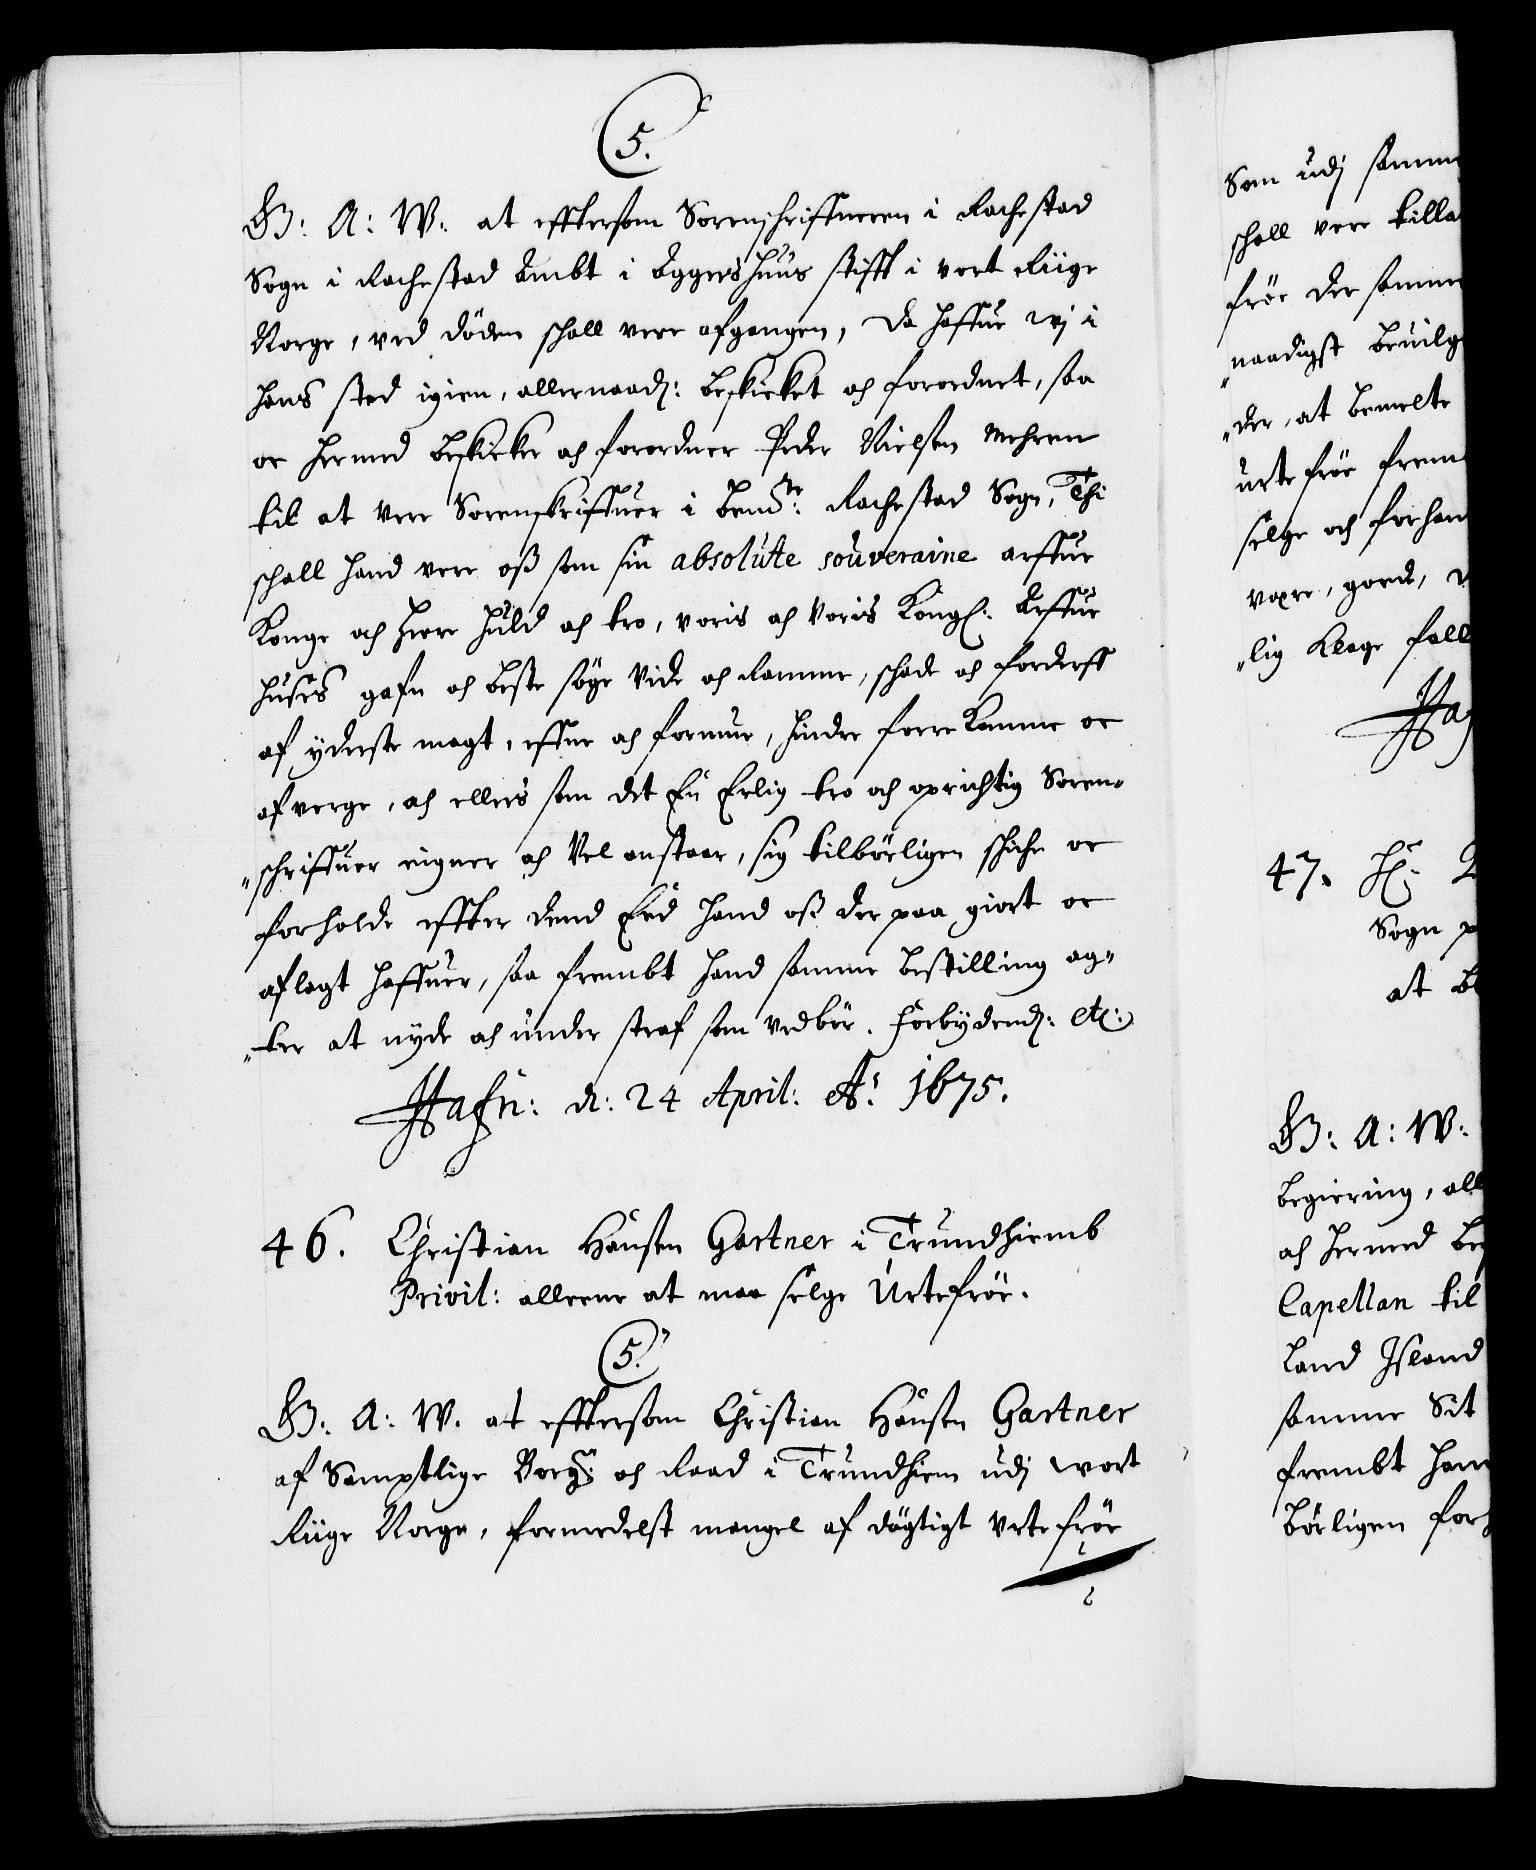 5.
G: A: W: at effttersom Sorenschriffueren i Rachestad
Sogn i Rachestad Ambt i Aggershuus stifft i vort Riige
Norge, ved döden schall vere afgangen, Da haffue wj i
hans sted igien, allernaadj: beskicket och forordnet, saa
oc hermed beskicker och forordner Peder Nielsen Mehren
til at vere Sorenskriffuer i bemte: Rachestad Sogn, Thi
schall hand vere oß som sin absolutte souveraine arffue
Konge och Herre huld och tro, voris och Voris Kongl: Arffue
huses gafn och beste söge vide och ramme, schade och forderff
af yderste magt, effne och formue, hindre forrekomme oc
afverge, och ellers som det En Erlig tro och oprichtig Soren„
„schriffuer eigner och Vel anstaar, sig tilbörligen schicke oc
forholde effter dend Eed hand oß der paa giort oc
aflagt haffuer, saa frembt hand samme bestilling ag„
„ter at nyde och under straf som vedbör. Forbydendj: etc:
Hafn: d: 24 April: Ao: 1675.
46. Christian Hansen Gartner i Trundhiemb
Privil: alleene at maa selge Urtefröe.
5.
G: A: W. at effttersom Christian Hansen Gartner
af Samptlige Borgr: och Raad i Trundhiem udj vort
Riige Norge, formedelst mangel af dögtigt urtefröe
Som udj samme
schall vere tilla
fröe der samme
„naadigst bevilg
„der, at bemelte
urtefröe frem
selge och forhan
vaxre, goedt,
„lig Klage fall
Haf
47. Hr:
Sogn p
at be
G: A: W:
begiering, all
och hermed be
Capellan til
Land Island
samme Sit
frembt hand
börligen forh